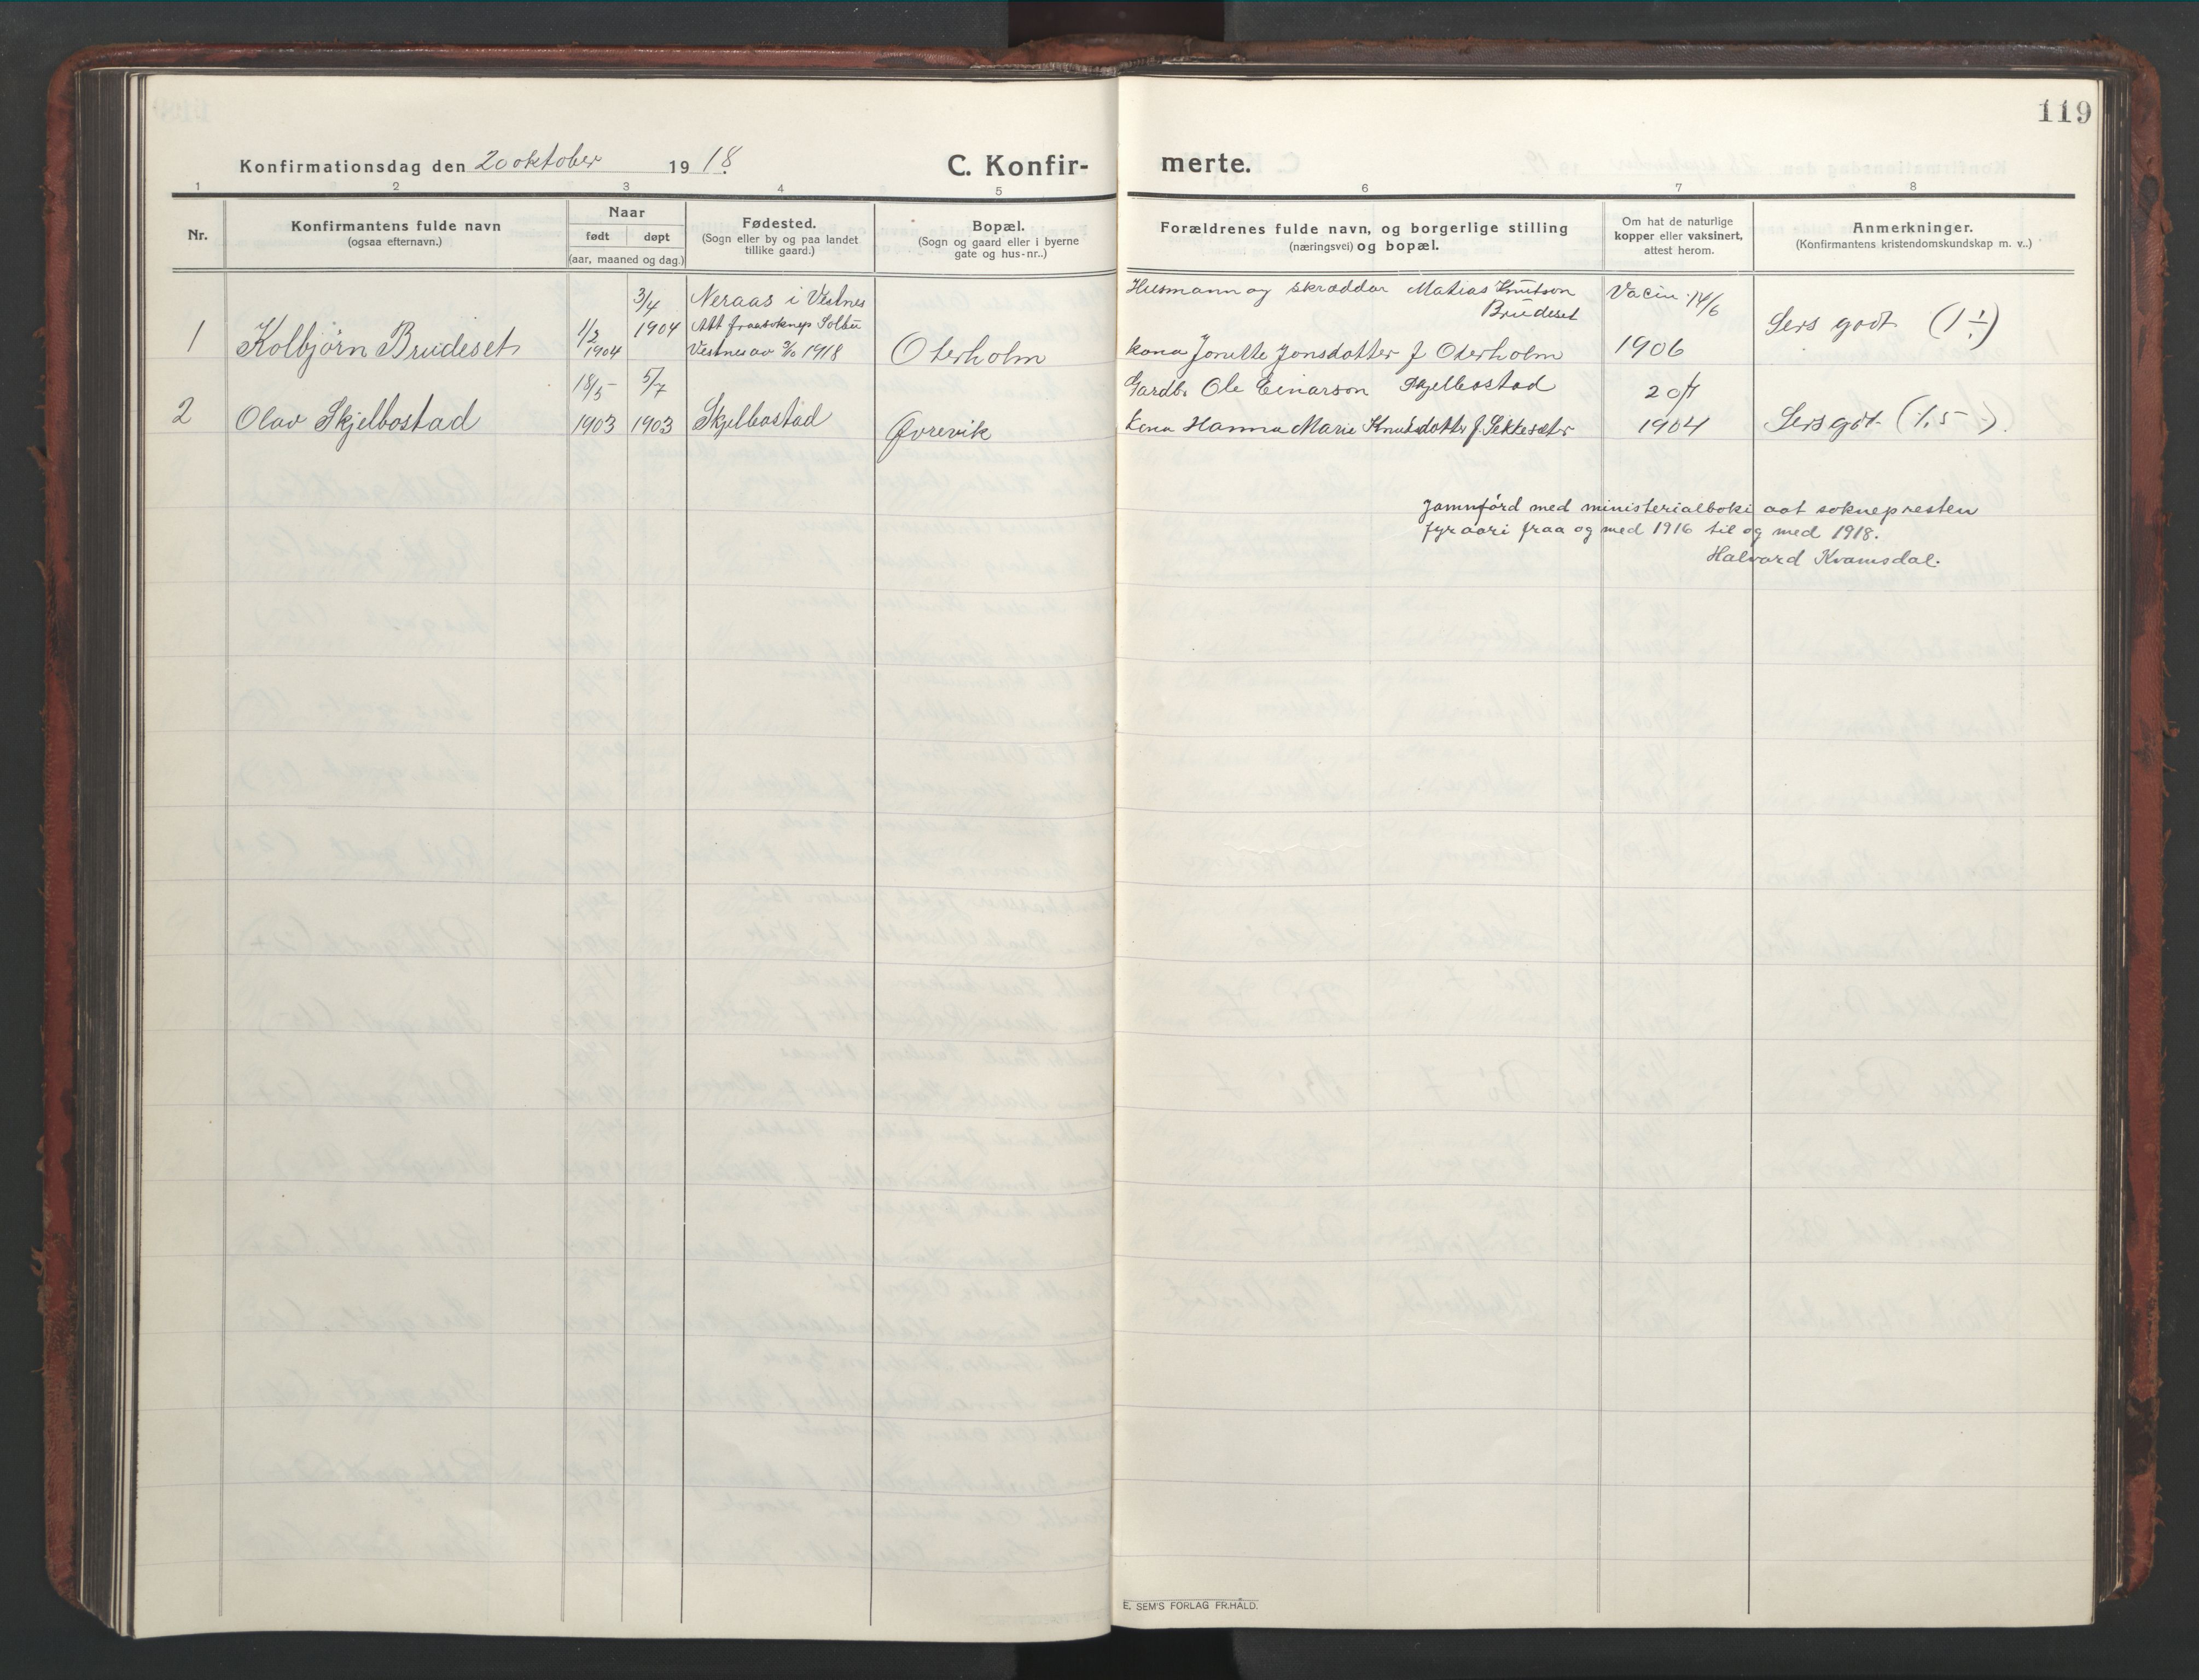 119
Konfirmationsdag den 20 oktober 1918.
C. Konfirmerte.
1 2 3 4 5 6 7 8
Nr.
Konfirmantens fulde navn
(ogsaa efternavn.)
Naar
født døpt
(aar, maaned og dag.)
Fødested.
(Sogn eller by og paa landet
tillike gaard.)
Bopæl.
(Sogn og gaard eller i byerne
gate og hus-nr..)
Forældrenes fulde navn, og borgerlige stilling
(næringsvei) og bopæl.
Om hat de naturlige
kopper eller vaksinert,
attest herom.
Anmerkninger.
(Konfirmantens kristendomskundskap m. v..)
1
Kolbjørn Brudeset
1/2
1904
3/4
1904
Neraas i Vestnes
Att fraa soknep
Vestnes av 1918
Oterholm
Husmann og skræddar Matias Knutson
Brudeset
kona Jonette Jonsdotter f Oterholm
Vacin. 14/6
1906
Sers godt (1 ÷)
2
Olav Skjelbostad
18/5
1903
5/7
1903
Skjelbostad
Øvrevik
Gardbr Ole Einarson Skjelbostad
kona Hanna Marie Knutsdotter f. Sekkesæter
1904
Sers godt (1,5 -).
Jamnførd med ministerialboki aat soknepresten
fyr aari fraa og med 1916 til og med 1918.
Halvard Kvamsdal.
E. SEM'S FORLAG FR.HALD.